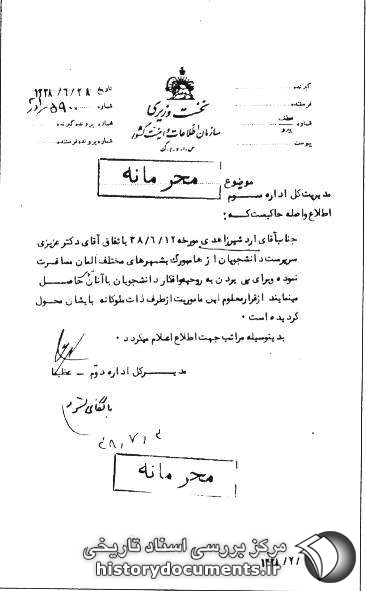 گیرنده
فرستنده
شماره عطف
پیرو
پیوست
نخست وزیری
سازمان اطلاعات و امنیت کشور
س.ا.و.ا.ک
تاریخ ۱۳۳۸/۶/۲۸
شماره
شماره پرونده گیرنده
شماره پرونده فرستنده
محرمانه
موضوع
مدیریت کل اداره سوم
اطلاع واصله حاکیست که:
جناب آقای اردشیر زاهدی مورخه ۳۸/۶/۱۲ باتفاق آقای دکتر عزیزی
سرپرست دانشجویان از هامبورگ بشهرهای مختلف آلمان مسافرت
نموده و برای پی بردن به روحیه و افکار دانشجویان با آنان تماس حاصل
مینمایند از قرار معلوم این ماموریت از طرف ذات ملوکانه بایشان محول
گردیده است.
بدینوسیله مراتب جهت اطلاع اعلام میگردد.
مدیر کل اداره دوم -
بایگانی شود
محرمانه
مرکز بررسی اسناد تاریخی
historydocuments.ir